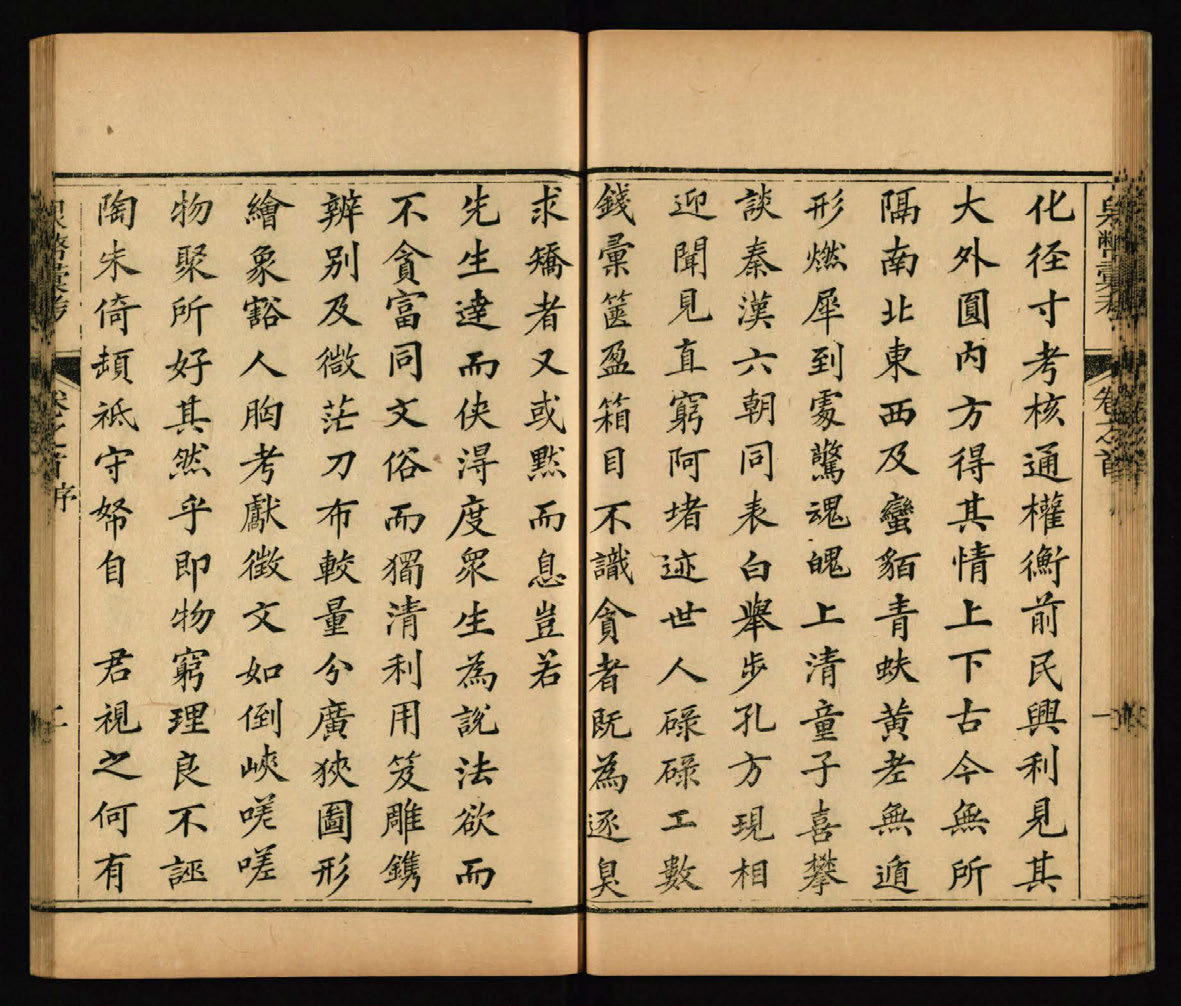 泉幣彙考
卷之首
一
化径寸考核通權衡前民興利見其
大外圓内方得其情上下古今無所
隔南北東西及蠻貊青蚨黄老無遁
形燃犀到處驚魂魄上清童子喜攀
談秦漢六朝同表白舉步孔方現相
迎聞見直窮阿堵迹世人碌碌工數
錢彙篋盈箱目不識貪者既為逐臭
求矯者又或黙而息豈若
先生達而俠淂度衆生為說法欲而
不貪富同文俗而獨清利用笈雕鐫
辨别及微茫刀布較量分廣狹圖形
繪象豁人胸考獻徴文如倒峽嗟嗟
物聚所好其然乎即物窮理良不誣
陶朱倚頓祗守帑自 君視之何有
泉幣彙考
卷之首 序
二